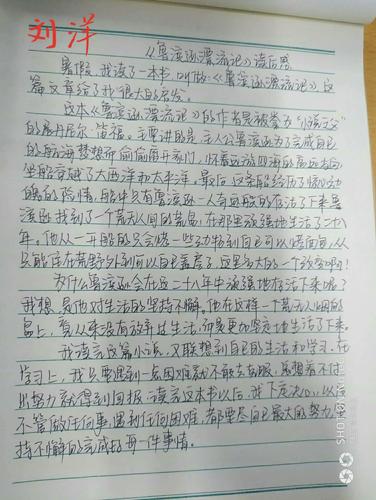 刘洋
《鲁滨逊漂流记》读后感
暑假，我读了一本书，叫做《鲁滨逊漂流记》，这
篇文章给了我很大的启发。
这本《鲁滨逊漂流记》的作者是被誉为“小说之父”
的丹尼尔·笛福。主要讲的是：主人公鲁滨逊为了完成自己
的航海梦想而偷偷离开家门，怀着远游四海的高远志向，
坐船穿越了大西洋和太平洋。最后，这条船经历了惊心动
魄的险情，船中只有鲁滨逊一人奇迹般的存活了下来。鲁
滨逊找到了一个荒无人烟的荒岛，在那里顽强地生活了二十八
年。他从一开始的只会烤一些动物到自己可以烤面包，从
只能住在荒野外到可以自己盖房子，这是多大的一个改变啊！
为什么鲁滨逊会在这二十八年中顽强地存活下来呢？
我想，是他对生活的坚持不懈。他在这样一个荒无人烟的
岛上，看从来没有放弃过生活，而是更加坚定地生活了下来。
我读完这篇小说，又联想到自己的生活和学习。在
学习上，我只要遇到一点困难就不敢去克服，总想着不付
出努力就得到回报。读完这本书以后，我下定决心，以后
不管做任何事，遇到任何困难，都要尽自己最大的努力，坚
持不懈的完成好每一件事情。
SHOT ON